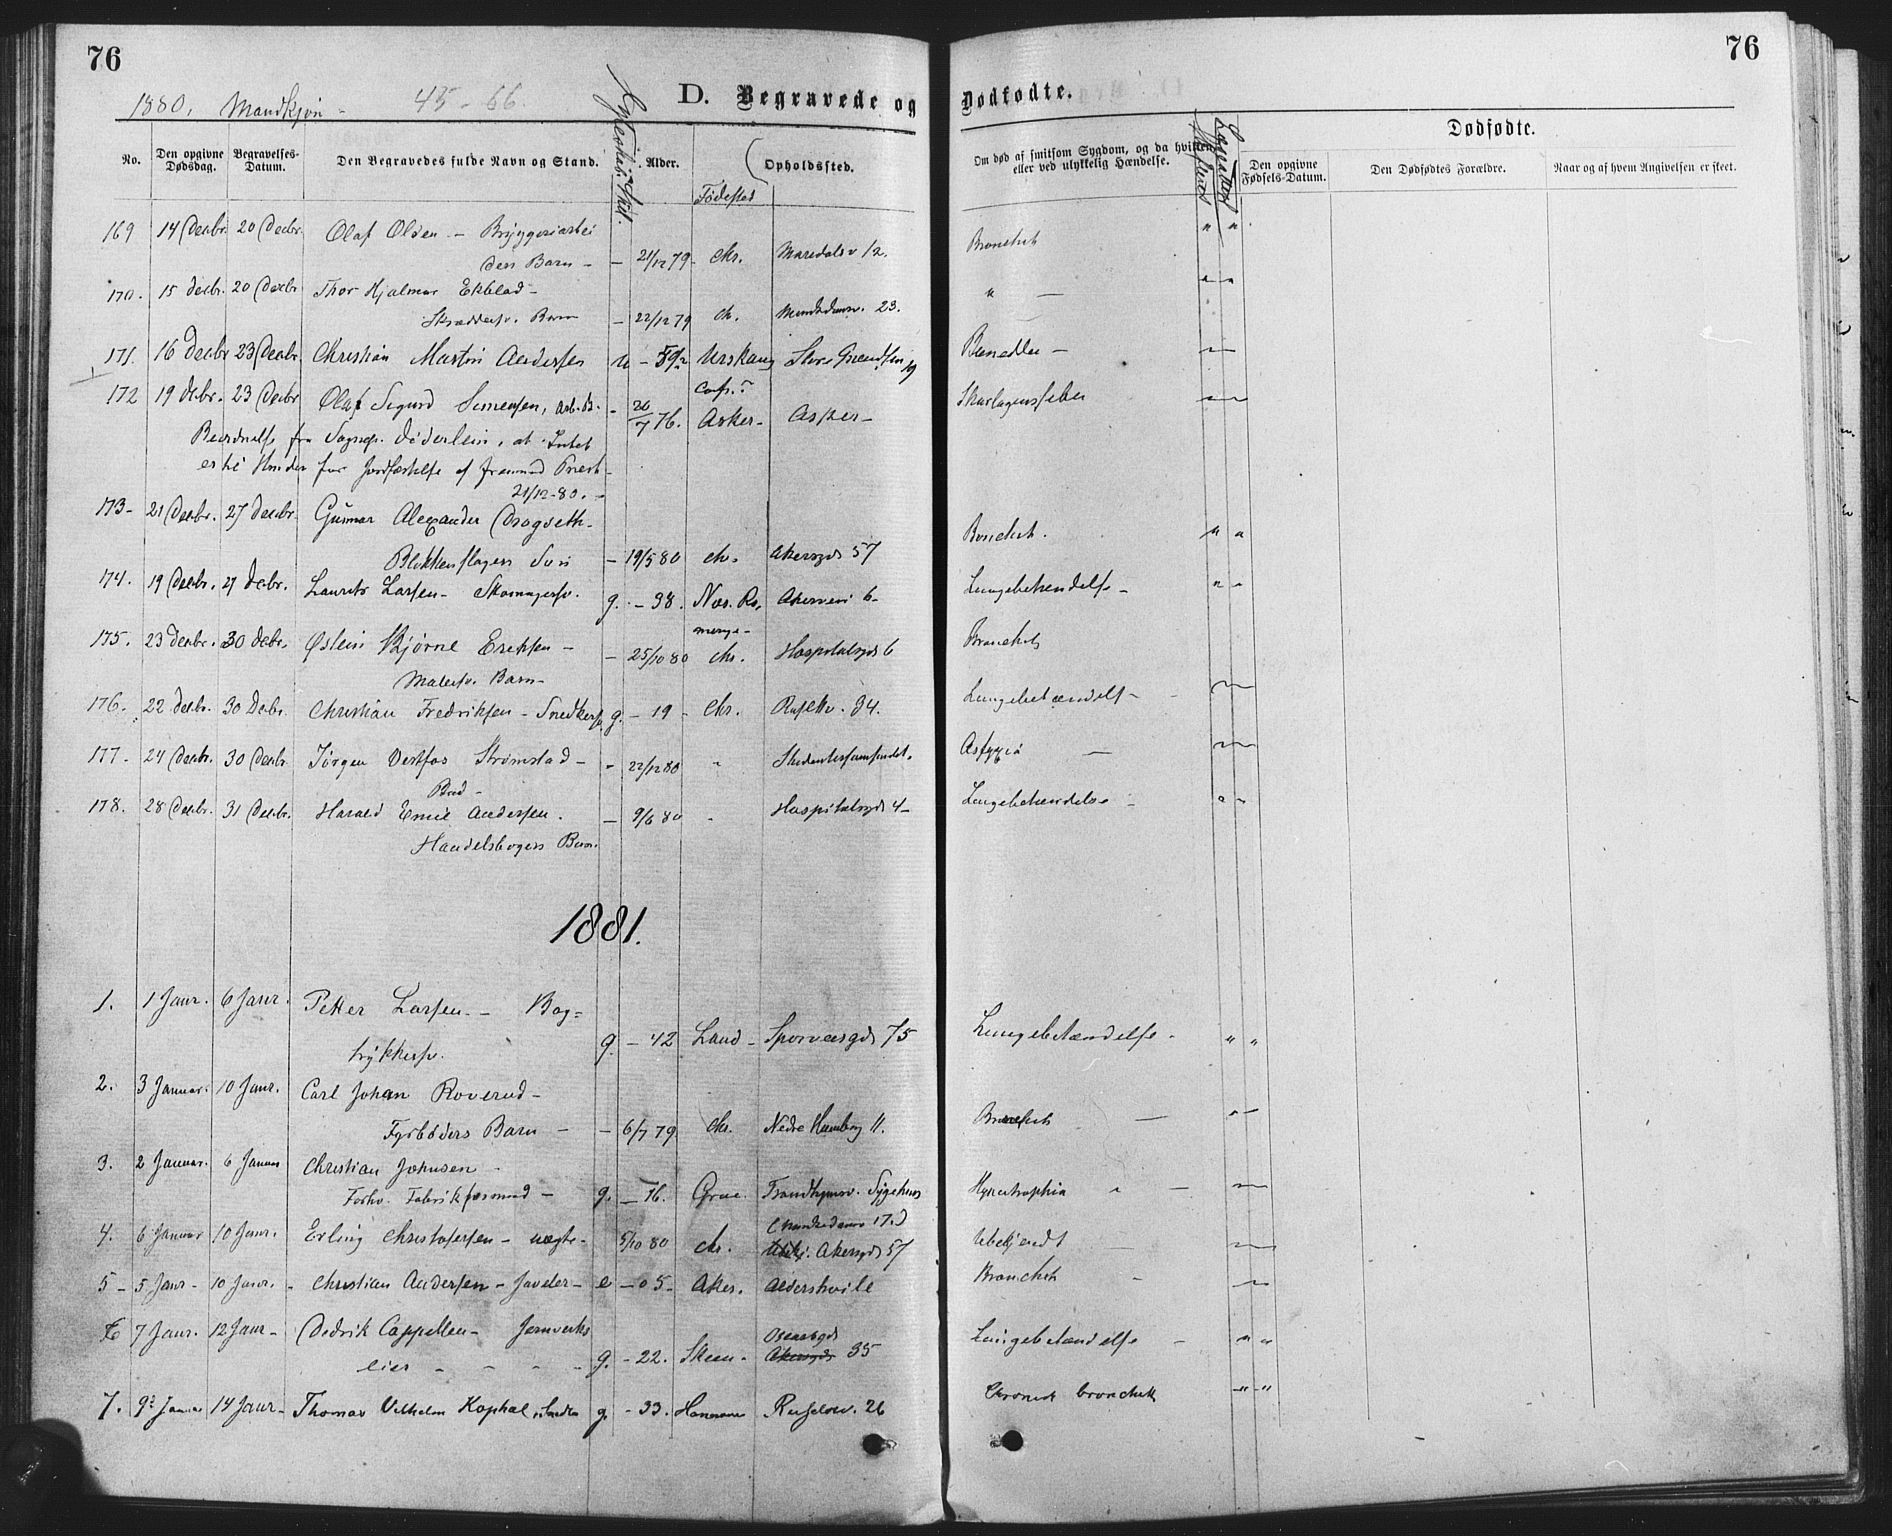 76
76
1880. Mandkjøn - 45-66.
D. Begravede og Dødfødte.
No.
Den opgivne Dødsdag.
Begravelses-Datum.
Den Begravedes fulde Navn og Stand.
Alder.
Fødested
Opholdssted.
Om død af smitsom Sygdom, og da hvilken, eller ved ulykkelig Hændelse.
Dødfødte.
Den opgivne Fødsels-Datum.
Den Dødfødtes Forældre.
Naar og af hvem Angivelsen er skeet.
169 14 Decbr. 20 Decbr. Olaf Olsen - Bryggeriarbei
ders Barn - - 21/12 79 - Chr. Maridalsv 12. Bronchit " "
170. 15 Decbr. 20 Decbr Thor Hjalmar Ekblad -
Skrædersv. Barn - 22/12 79 Ch. Munkedamsv. 23. " —
171. 16 Decbr 23 Decbr. Christian Martin Andersen u - 59 Urskoug Store 19
172 19 Decbr. 23 Decbr Olaf Sigurd Simensen, Arb. B. - 26/7 76. Asker - Asker - Skarlagensfeber
fra Sognepr. Döderlein, at Intet
er til Hinder for Jordfæstelse af fremmed Præst -
21/12-80. -
173 - 21 Decbr. 27 Decbr. Gunnar Alexander Dragseth -
Blikkenslagers Søn - 19/5 80 Chr. Akersgd 57 Bronchit. " "
174. 19 Decbr. 27 Decbr. Laurits Larsen - Skomagersv. g. - 38. Nes. Ro, Akersvei 6 - Lungebetændelse - " "
merige -
175. 23 Decbr. 30 Decbr. Østein Bjørne Eriksen -
Malersv. Barn - - 25/10 80 Chr. Hospitalsgd 6 Bronchit
176. 22 Decbr. 30 Decbr. Christian Fredriksen - Snedkersv. g. - 19 - Chr. Rusløkv. 34. Lungebetændelse -
177. 24 Decbr. 30 Decbr. Jørgen Vestfos Strømstad -
Bud - - 22/12 80 " Studentersamfundet. Asfyxia —
178. 28 Decbr. 31 Decbr. Harald Emil Andersen.
Handelsbogers Barn. - 9/6 80 " Hospitalsgd 4 - Lungebetændelse - " "
1881.
1. 1 Janr. 6 Janr. Petter Larsen - Bog=
trykkersv. g. - 42 Land - Sporveisgd 75 Lungebetændelse - " "
2. 3 Januar. 10 Janr. Carl Johan Roverud -
Fyrbøders Barn - - 6/7 79 Chr. Nedre Hamborg 11. Bronchit —
3. 2 Januar. 6 Januar Christian Johnsen -
Forhv. Fabrikformand - g. - 76. Grue. Trondhjemsv. Sygehus Hypertrophia " —
4. 6 Januar 10 Janr. Erling Christofersen - uægte - 5/10 80 Chr. (Munkedamsv 17.) Akersgd 57 Ubekjendt
5 - 5 Janr - 10 Janr. - Christian Andersen - e - 05 - Aker. Aldershvile Bronchit -
6 7 Janr. 12 Janr - Didrik Cappelen - Jernverks
eier - - - - g. - 22. Skien - Oscarsgd Akersgd 35 Lungebetændelse - " "
7. 9 Januar 14 Janr - Thomas Vilhelm Kophal, g. - 33. Hannover Rusløkv. 26 Chronisk bronchit - " - "